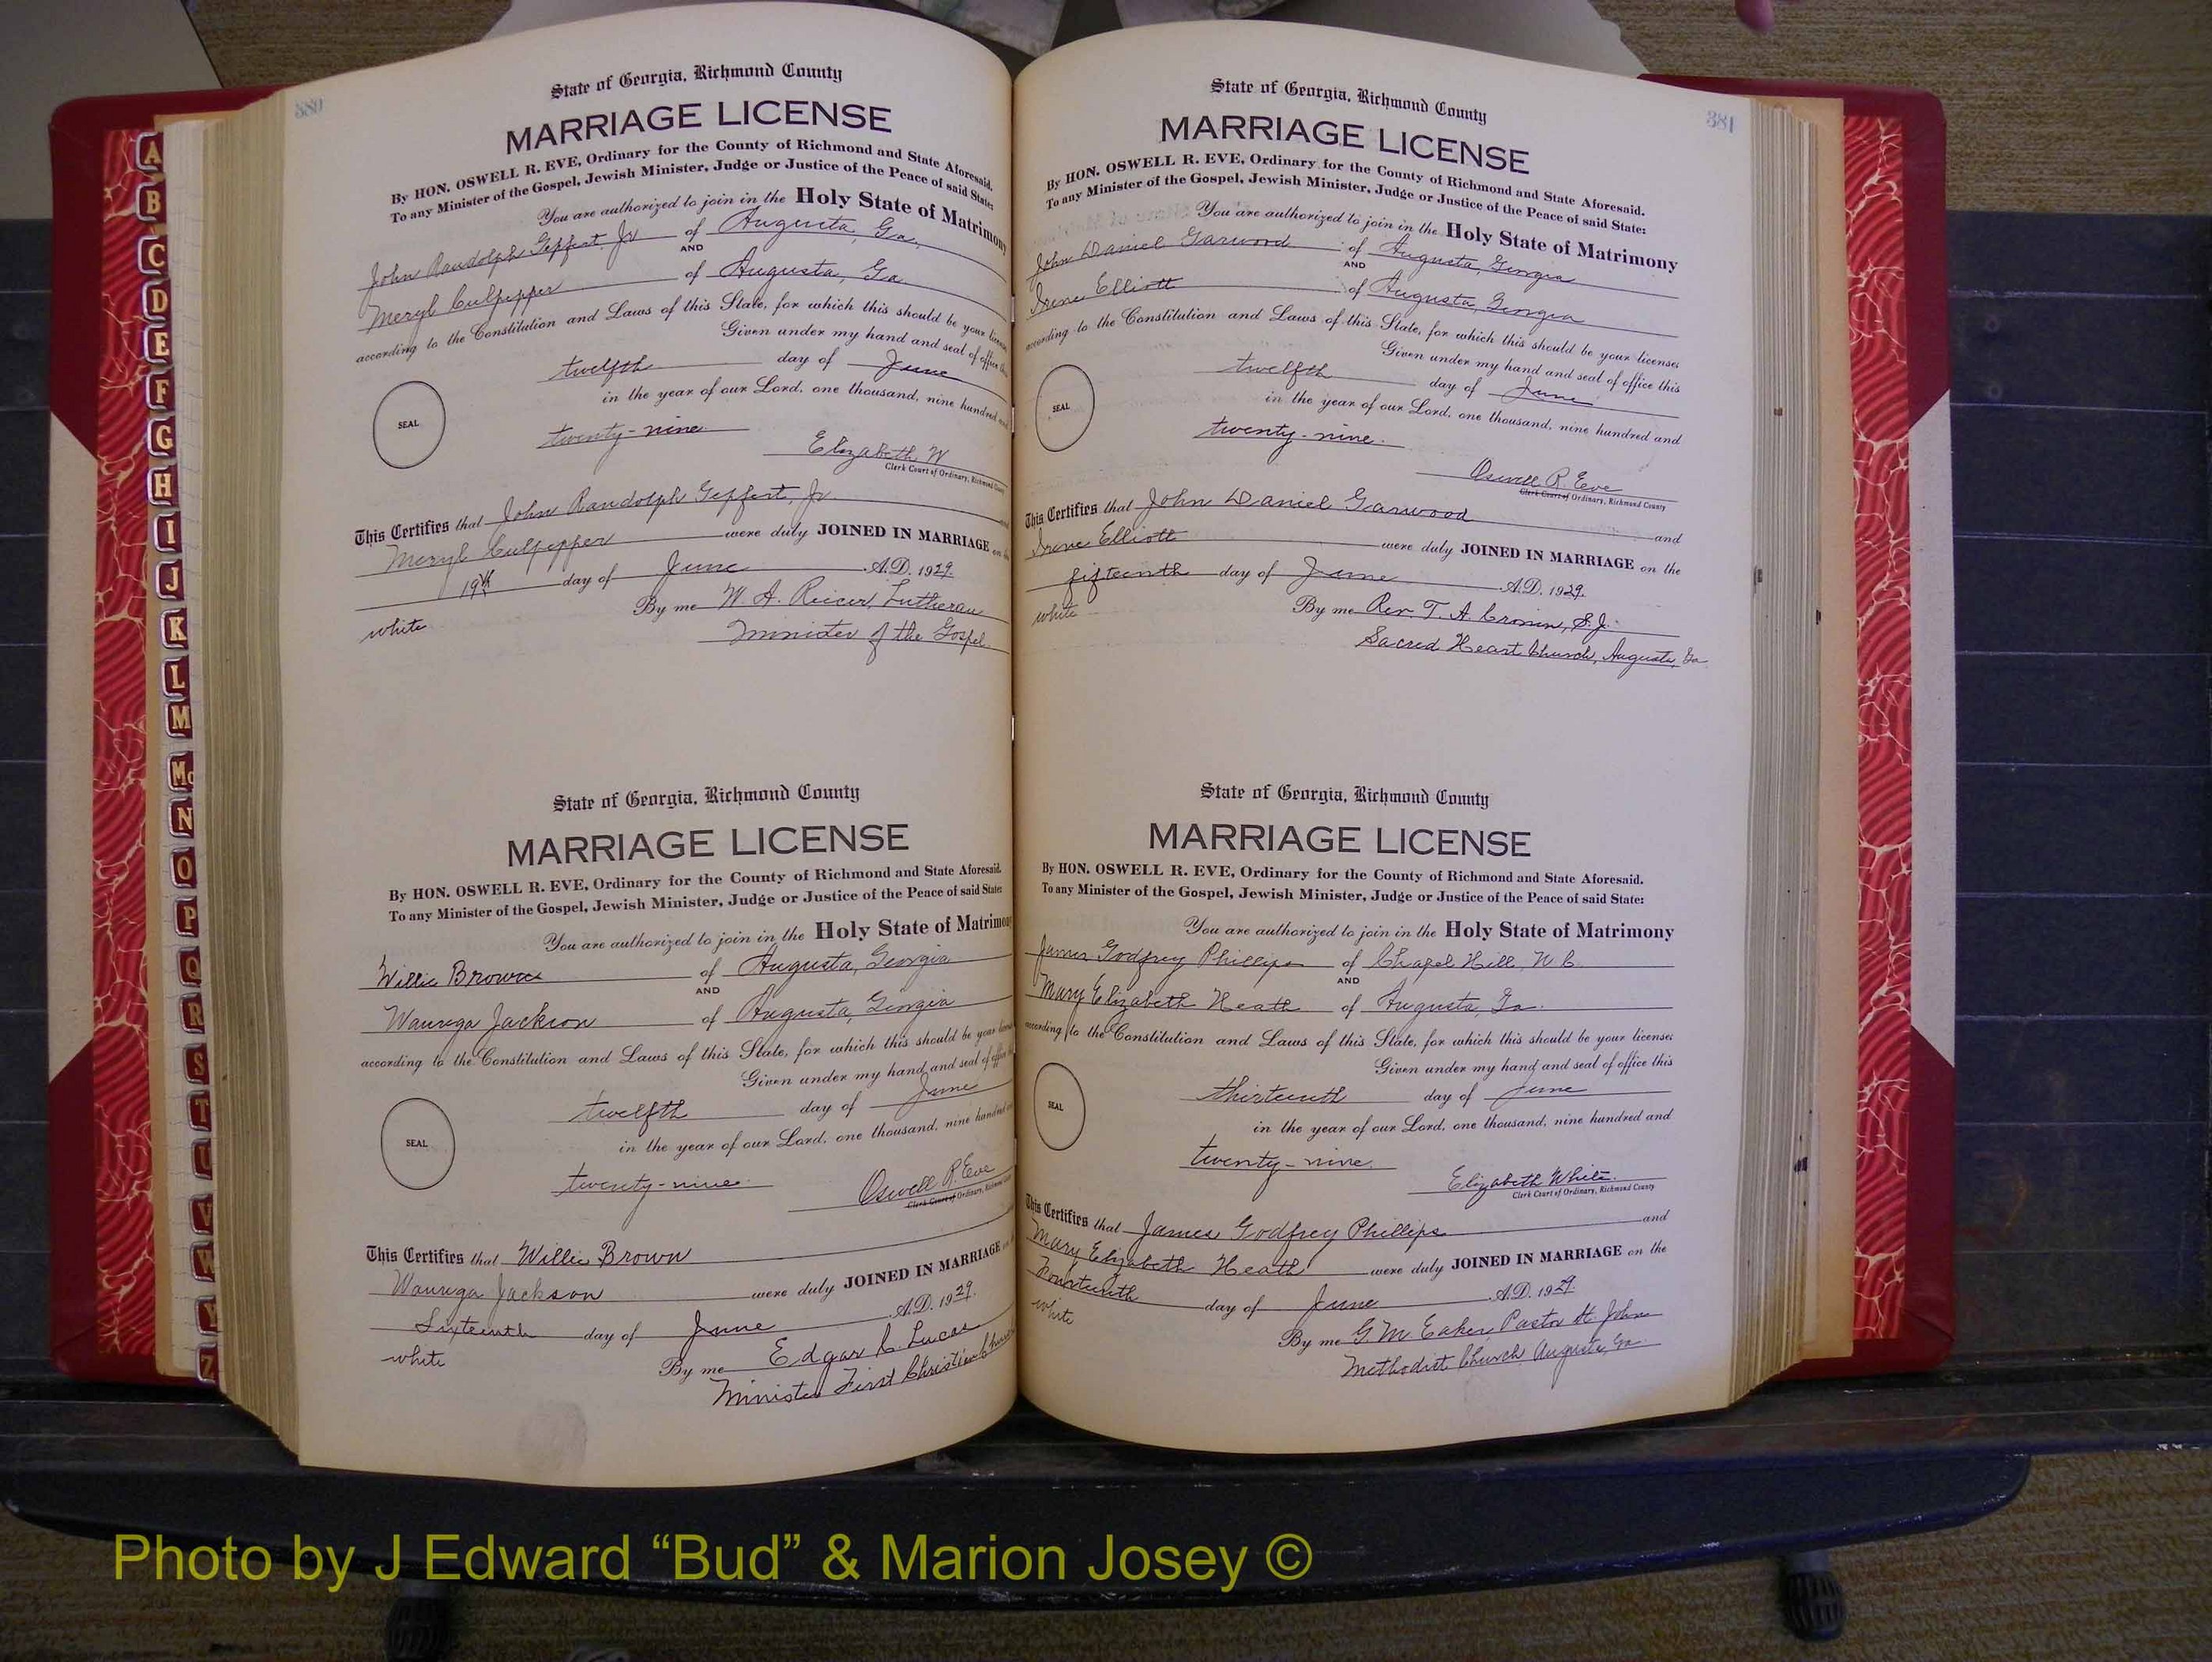 380
State of Georgia, Richmond County
MARRIAGE LICENSE
By HON. OSWELL R. EVE, Ordinary for the County of Richmond and State Aforesaid.
To any Minister of the Gospel, Jewish Minister, Judge or Justice of the Peace of said State:
You are authorized to join in the Holy State of Matrimony
John Randolph Geffert, Jr of Augusta, Ga.
AND
Meryl Culpepper of Augusta, Ga
according to the Constitution and Laws of this State, for which this should be your licens
Given under my hand and seal of office this
twelfth day of June
in the year of our Lord, one thousand, nine hundred and
SEAL
twenty-nine.
Elizabeth W
Clerk Court of Ordinary, Richmond County
This Certifies that John Randolph Geffert, Jr
Meryl Culpepper were duly JOINED IN MARRIAGE on
19th day of June A.D. 1929.
By me W. A. Lutheran
white Minister of the Gospel.
State of Georgia, Richmond County
MARRIAGE LICENSE
By HON. OSWELL R. EVE, Ordinary for the County of Richmond and State Aforesaid.
To any Minister of the Gospel, Jewish Minister, Judge or Justice of the Peace of said State:
You are authorized to join in the Holy State of Matrimony
Willie Brown of Augusta, Georgia
AND
Jackson of Augusta, Georgia
according to the Constitution and Laws of this State, for which this should be your
Given under my hand and seal of office
twelfth day of June
in the year of our Lord, one thousand, nine hundred
SEAL
twenty-nine.
Oswell R. Eve
Clerk Court of Ordinary, Richmond
This Certifies that Willie Brown
Jackson were duly JOINED IN MARRIAGE
Sixteenth day of June A.D. 1929.
white By me Edgar C. Lucas
Minister First Christian Church
381
State of Georgia, Richmond County
MARRIAGE LICENSE
By HON. OSWELL R. EVE, Ordinary for the County of Richmond and State Aforesaid.
To any Minister of the Gospel, Jewish Minister, Judge or Justice of the Peace of said State:
You are authorized to join in the Holy State of Matrimony
John Daniel Garwood of Augusta, Georgia
AND
Irene Elliott of Augusta, Georgia
according to the Constitution and Laws of this State, for which this should be your licenses
Given under my hand and seal of office this
twelfth day of June
in the year of our Lord, one thousand, nine hundred and
SEAL
twenty-nine.
Oswell R. Eve
Clerk Court of Ordinary, Richmond County
This Certifies that John Daniel Garwood and
Irene Elliott were duly JOINED IN MARRIAGE on the
fifteenth day of June A.D. 1929.
white By me Rev. T. A. Cronin, S.J.
Sacred Heart Church, Augusta, Ga
State of Georgia, Richmond County
MARRIAGE LICENSE
By HON. OSWELL R. EVE, Ordinary for the County of Richmond and State Aforesaid.
To any Minister of the Gospel, Jewish Minister, Judge or Justice of the Peace of said State:
You are authorized to join in the Holy State of Matrimony
James Godfrey Phillips of Chapel Hill, N.C.
AND
Mary Elizabeth Heath of Augusta, Ga.
according to the Constitution and Laws of this State, for which this should be your licenses
Given under my hand and seal of office this
thirteenth day of June
in the year of our Lord, one thousand, nine hundred and
SEAL
twenty-nine.
Elizabeth White.
Clerk Court of Ordinary, Richmond County
This Certifies that James Godfrey Phillips and
Mary Elizabeth Heath were duly JOINED IN MARRIAGE on the
Fourteenth day of June A.D. 1929.
white By me G. M. Eakes, Pastor St. John
Methodist Church, Augusta, Ga
A
B
C
D
E
F
G
H
I
J
K
L
M
Mc
N
O
P
Q
R
S
T
U
V
W
Y
Z
Photo by J Edward “Bud” & Marion Josey ©